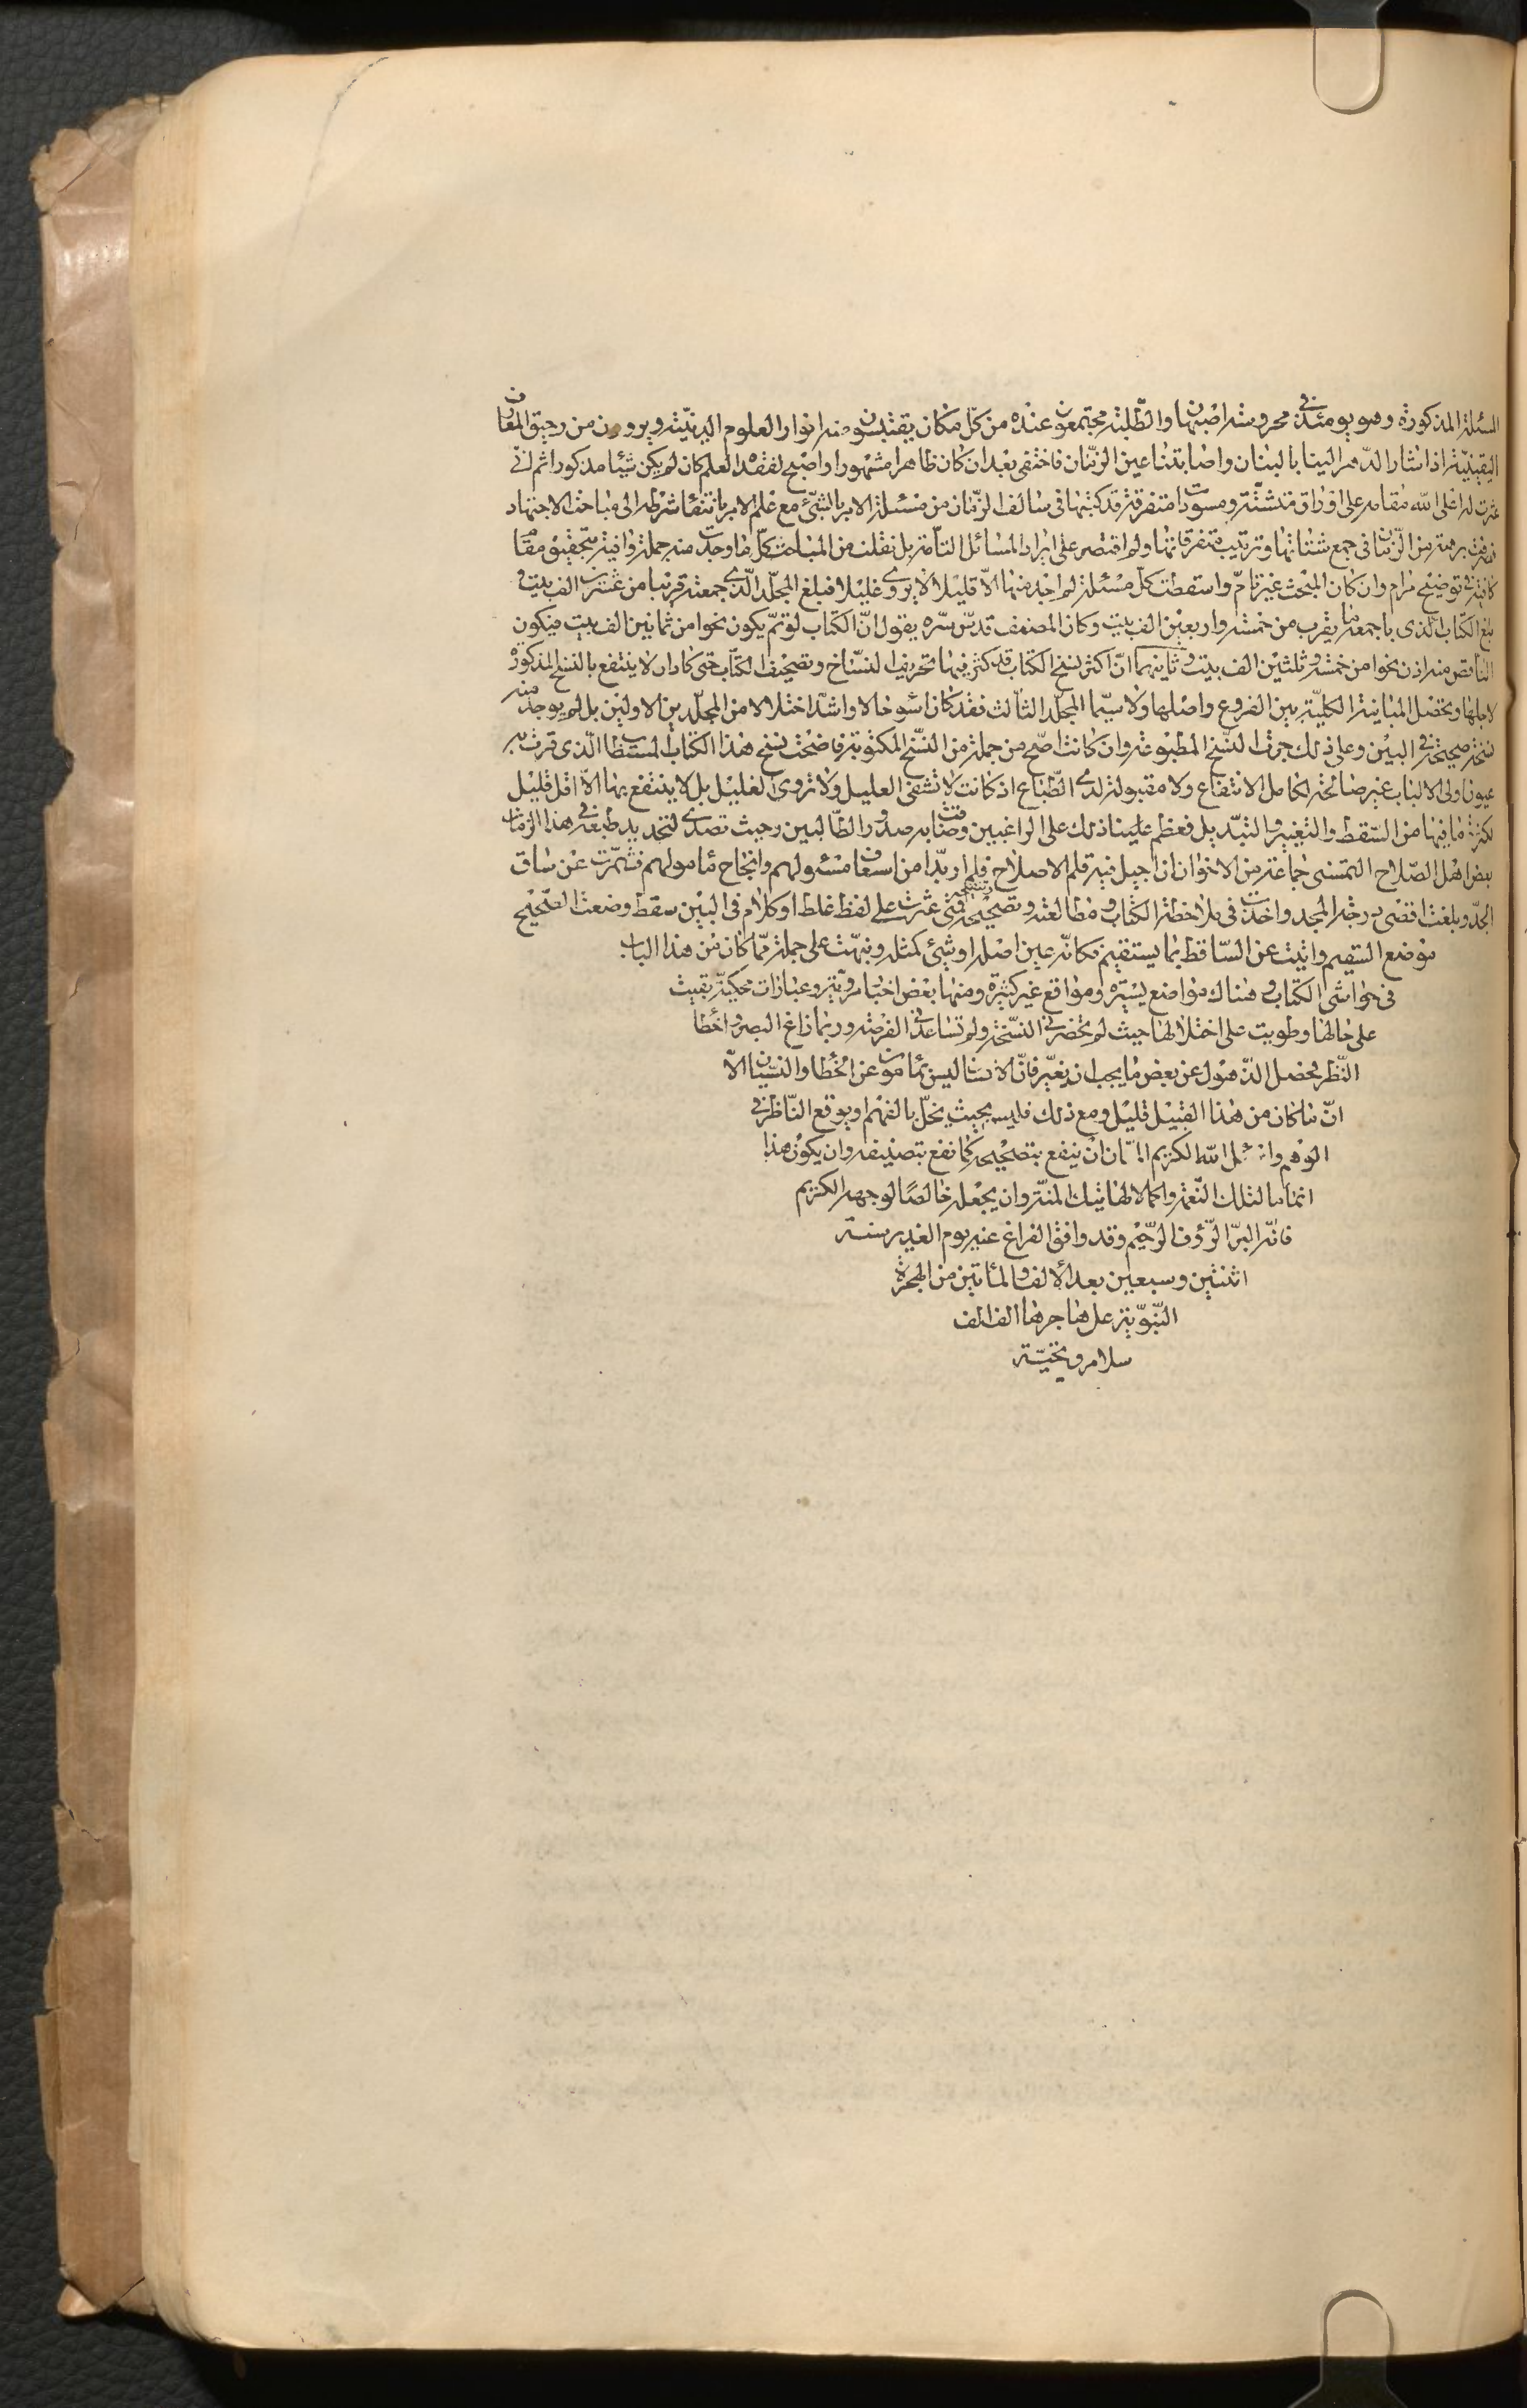 المسئلة المذكورة وهو يومئذ فى محروسة اصبهان والطلبة مجتمعون عنده من كلّ مكان يقتبسون منه انوار العلوم الدينيّة ويروون من رحيق المعارف
اليقينيّة اذ اشار الدّهر الينا بالبنان واصابتنا عين الزّمان فاختفى بعد ان كان ظاهرا مشهورا واصبح لفقده العلم كان لم يكن شيئا مذكورا ثم انّى
عثرت له اعلى الله مقامه على اوراق متشتّتة ومسوّدات متفرقة قد كتبها فى سالف الزّمان من مسئلة الامر بالشّئ مع علم الامر بانتفاء شرطه الى مباحث الاجتهاد
فصرفت برهة من الزّمان فى جمع شتاتها وترتيب متفرقاتها ولم اقتصر على ايراد المسائل التامّة بل نقلت من المباحث كلّ ما وجدت منه جملة وافية بتحقيق مقام
كافية فى توضيح مرام وان كان المبحث غير تامّ واسقطت كلّ مسئلة لم اجد منها الّا قليلا لا يروى غليلا فبلغ المجلّد الّذى جمعته قريبا من عشرين الف بيت و
بلغ الكتاب الّذى باجمعه ما يقرب من خمسة واربعين الف بيت وكان المصنف قدّس سّره يقول انّ الكتاب لو تمّ يكون نحوا من ثمانين الف بيت فيكون
الناقص منه اذن نحوا من خمسة وثلثين الف بيت وثانيهما انّ اكثر نسخ الكتاب قد كثر فيها تحريف النسّاخ وتصحيف الكتّاب حتى كاد ان لا ينتفع بالنسخ المذكورة
لاجلها ويحصل المباينة الكليّة بين الفروع واصلها ولا سيّما المجلّد الثالث فقد كان اسوء حالا واشدّ اختلالا من المجلّدين الاولين بل لم يوجد منه
نسخة صحيحة فى البين وعلى ذلك جرت النّسخ المطبوعة وان كانت اصّح من جملة من النّسخ المكتوبة فاضحت نسخ هذا الكتاب المستطاب الّذى قرت به
عيون اولى الالباب غير صالحة لكامل الانتفاع ولا مقبولة لدى الطّباع اذ كانت لا تشفى العليل ولا تروى الغليل بل لا ينتفع بها الّا اقل قليل
لكثرة ما فيها من السّقط والتّغيير والتّبديل فعظم علينا ذلك على الراغبين وضاقت به صدور الطّالبين وحيث تصدّى لتجديد طبعه فى هذا الزمان
بعض اهل الصّلاح التمسنى جماعة من الاخوان ان اجيل فيه قلم الاصلاح فلم ار بدّا من اسعاف مسئولهم وانجاح مامولهم فشمّرت عن ساق
الجدّ وبلغت اقصى درجة المجد واخذت فى ملاحظة الكتاب ومطالعته وتصحيحه وتنقيحه فمتى عثرت على لفظ غلط او كلام فى البين سقط وضعت الصّحيح
موضع السّقيم واتيت عن السّاقط بما يستقيم فكانّه عين اصله او شئ كمثله ونبهّت على جملة ممّا كان من هذا الباب
فى حواشى الكتاب وهناك مواضع يسيرة ومواقع غير كثيرة ومنها بعض اخبار مرويّة وعبارات محكيّة بقيت
على حالها وطويت على اختلالها حيث لم تحضرنى النسّخة ولم تساعدنى الفرصة وربما زاغ البصر واخطأ
النّظر فحصل الذّهول عن بعض ما يجب ان يغيّر فانّ الانسان ليس بمامون عن الخطا والنسّيان الّا
انّ ما كان من هذا القبيل قليل ومع ذلك فليس بحيث يخلّ بالفهم او يوقع النّاظر فى
الوهم واسئل الله الكريم المنّان ان ينفع بتصحيحه كما نفع بتصنيفه وان يكون هذا
اتماما لتلك النّعمة واكمالا لهاتيك المنّة وان يجعله خالصًا لوجهه الكريم
فانّه البرّ الرّؤف الرّحيم وقد وافق الفراغ عنه يوم الغدير سنة
اثنتين وسبعين بعد الالف والمأتين من الهجرة
النّبوّية على هاجرها الف الف
سلام وتحيّة